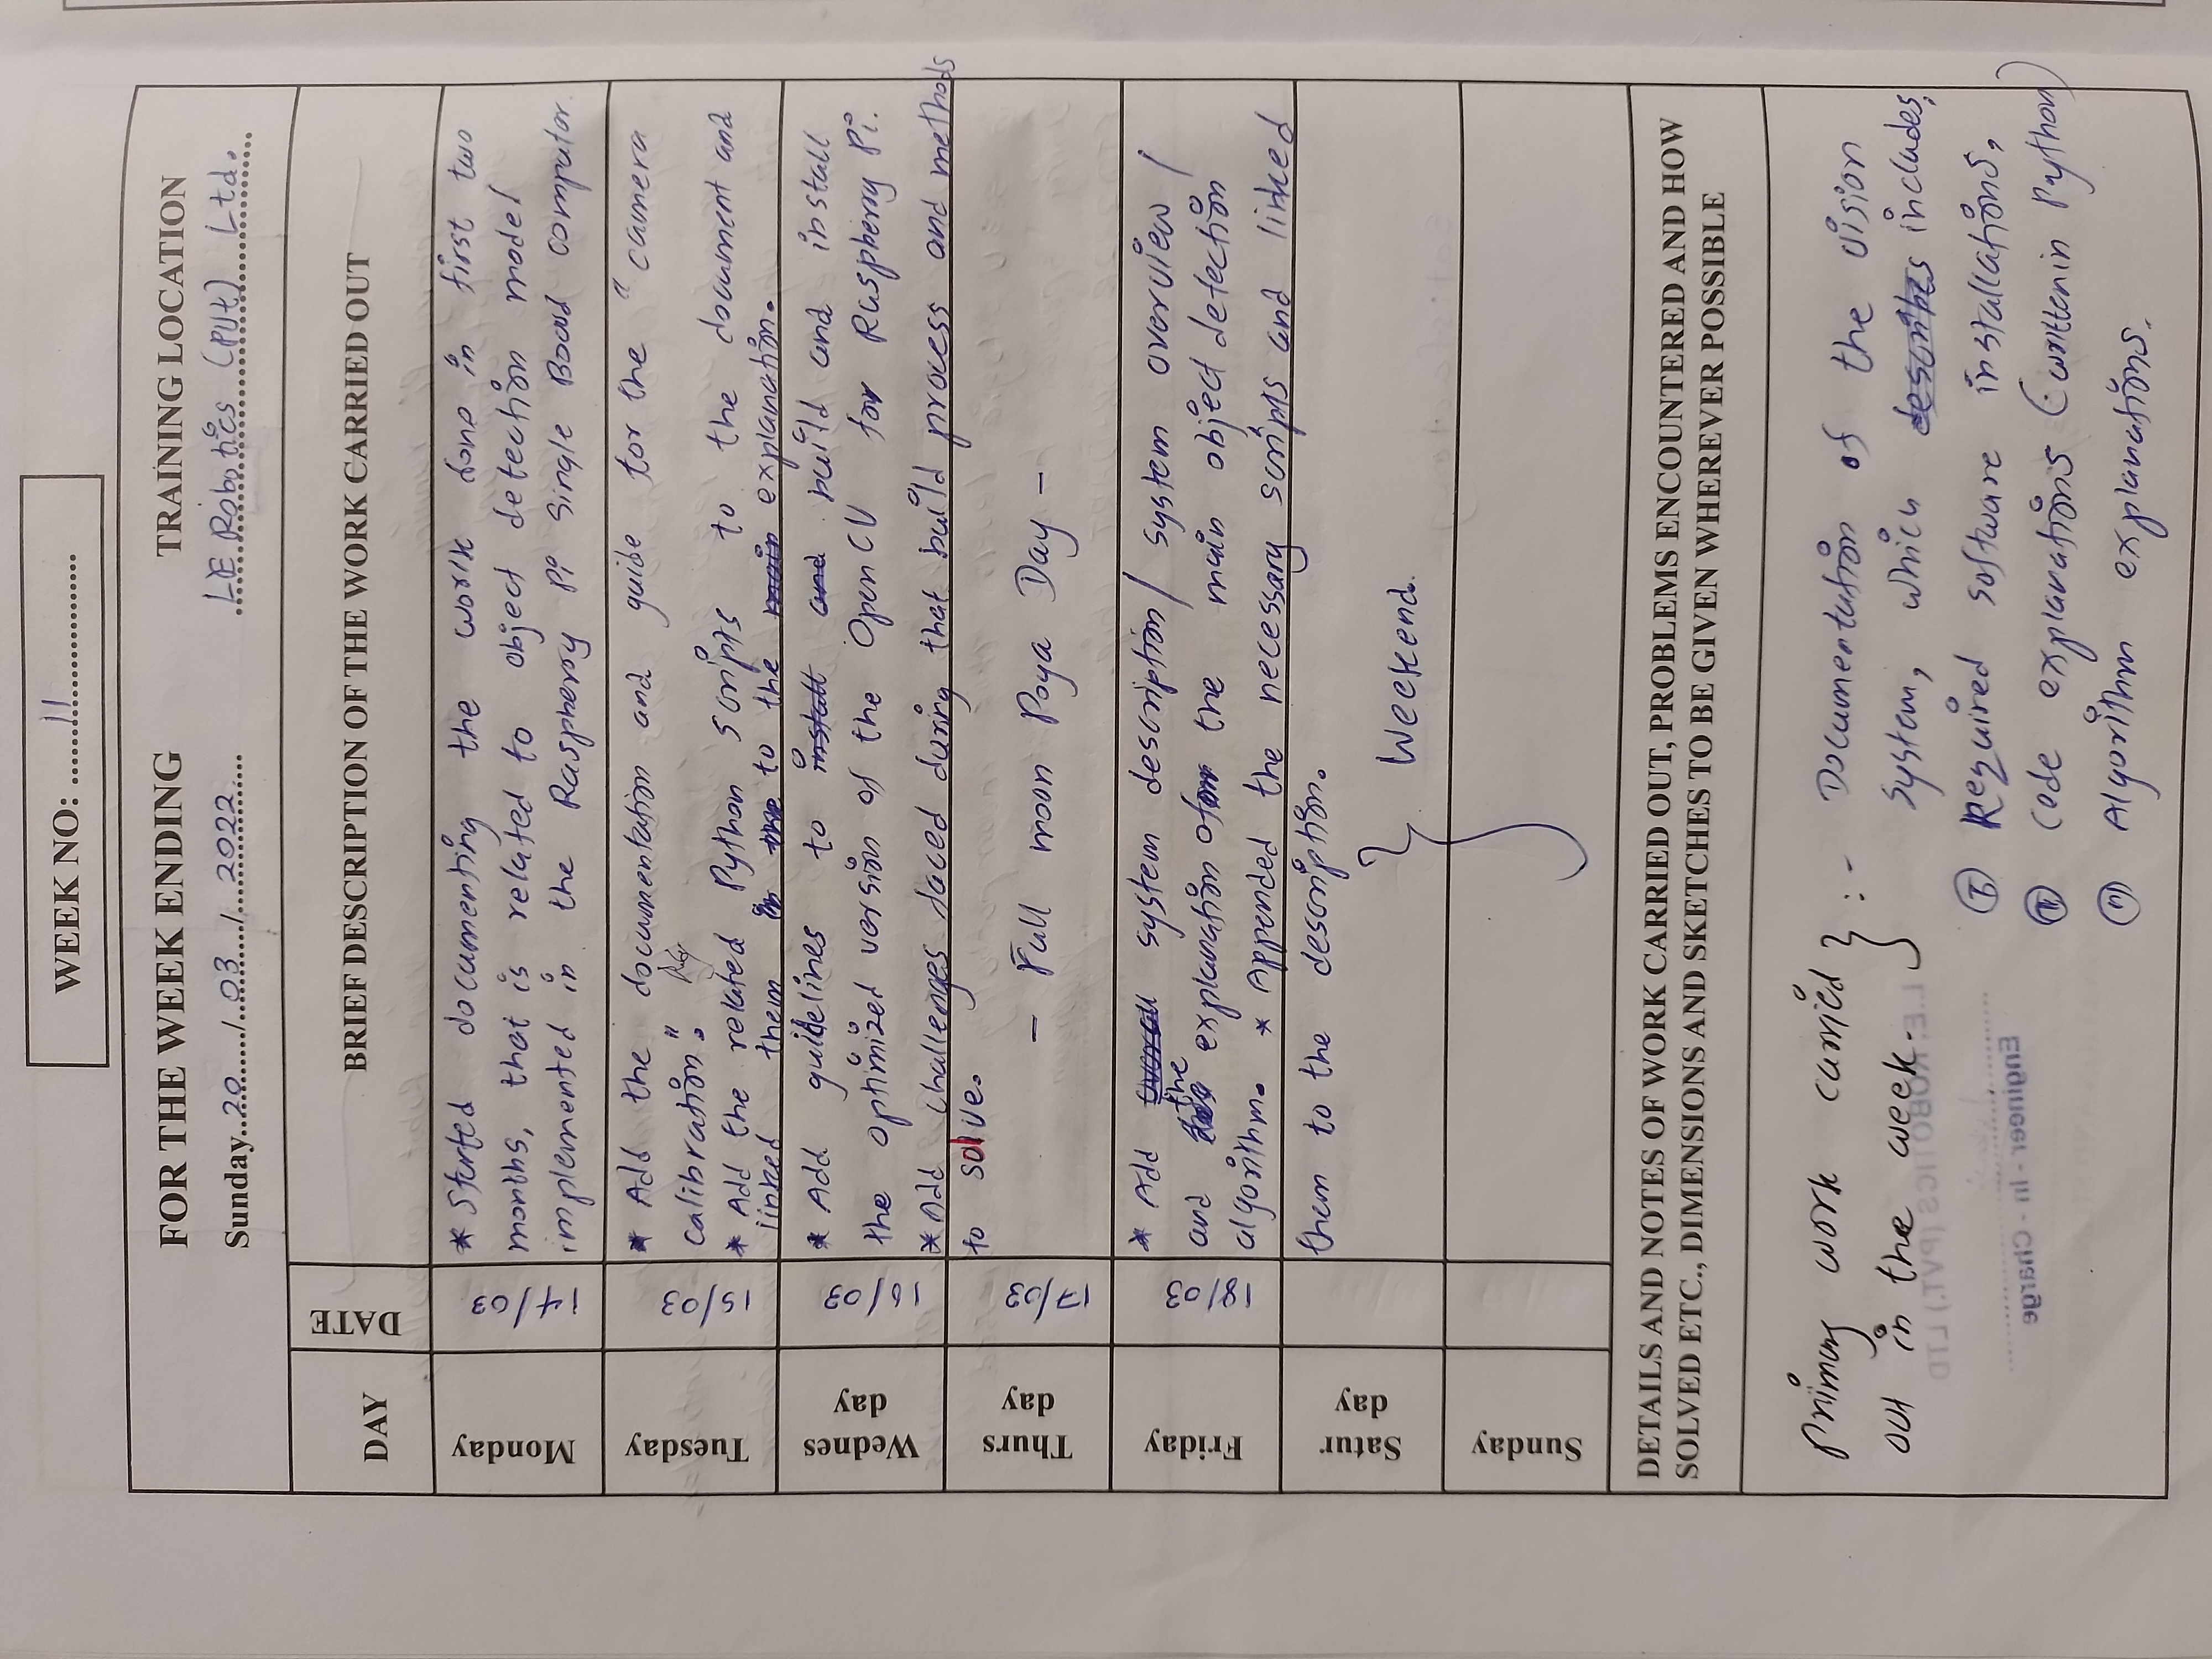 WEEK NO: ......11......................
FOR THE WEEK ENDING
TRAINING LOCATION
Sunday...20....../...03..../....2022.....
LE Robotics (Pvt) Ltd.
DAY
DATE
BRIEF DESCRIPTION OF THE WORK CARRIED OUT
Monday
14/03
* Started documenting the work done in first two
months, that is related to object detection model
implemented in the Raspberry Pi Single Board computer.
Tuesday
15/03
* Add the documentation and guide for the "camera
calibration".
* Add the related Python scripts to the document and
linked them in the to the main explanation.
Wednes
day
16/03
* Add guidelines to install and build and install
the optimized version of the OpenCV for Raspberry Pi.
* Add challenges faced during that build process and methods
to solve.
Thurs
day
17/03
- Full moon Poya Day -
Friday
18/03
* Add overall system description/ system overview /
and the explanation of the main object detection
algorithm. * Appended the necessary scripts and linked
them to the description.
Satur
day
Weekend.
Sunday
DETAILS AND NOTES OF WORK CARRIED OUT, PROBLEMS ENCOUNTERED AND HOW
SOLVED ETC., DIMENSIONS AND SKETCHES TO BE GIVEN WHEREVER POSSIBLE
Primary work carried
out in the week. } :- Documentation of the vision
system, which describes includes,
(I) Required software installations,
(II) Code explanations (written in Python)
(III) Algorithm explanations.
L.E. ROBOTICS (PVT.) LTD
Engineer - In - Charge